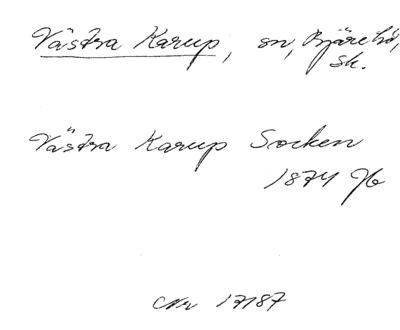 Västra Karup, sn, Bjäre hd,
Sk.
Västra Karup Socken
1874 Jb
Nr 17187